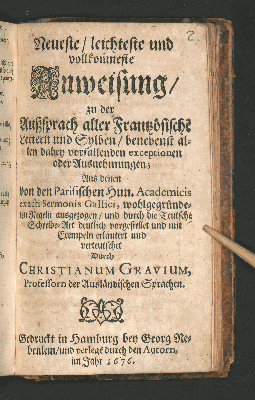 2.
Neueste/ leichteste und
vollkommeste
Anweisung/
zu der
Außsprach aller Frantzösische
Lettern und Sylben/ benebenst al-
len dabey vorfallenden exceptionen
oder Ausnehmungen;
Aus denen
von den Parisischen Hnn. Academicis
exacti Sermonis Gallici, wohlgegründe-
ten Regeln ausgezogen/ und durch die Teutsche
Schreib-Art deutlich vorgestellet und mit
Exempeln erläutert und
verteutschet
Durch
CHRISTIANUM GRAVIUM,
Professorn der Ausländischen Sprachen.
Gedruckt in Hamburg bey Georg Re-
benlein/ und verlegt durch den Autorn,
im Jahr 1676.